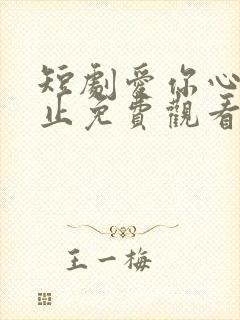 短劇愛你心
止免費觀看
王一梅